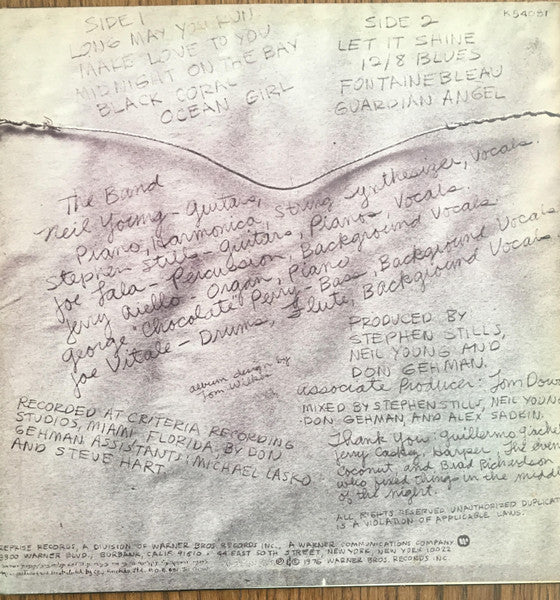 K54081
SIDE 1
LONG MAY YOU RUN
MAKE LOVE TO YOU
MIDNIGHT ON THE BAY
BLACK CORAL
OCEAN GIRL
SIDE 2
LET IT SHINE
12/8 BLUES
FONTAINEBLEAU
GUARDIAN ANGEL
The Band
Neil Young - Guitars,
Piano, Harmonica, String Synthesizer, Vocals.
Stephen Stills - Guitars, Pianos, Vocals.
Joe Lala - Percussion, Background Vocals
Jerry Aiello - Organ, Piano
George "Chocolate" Perry - Bass, Background Vocals
Joe Vitale - Drums, Flute, Background Vocals
album design by
Tom Wilkes
PRODUCED BY
STEPHEN STILLS,
NEIL YOUNG AND
DON GEHMAN.
Associate Producer: Tom Dow
MIXED BY STEPHEN STILLS, NEIL YOUNG
DON GEHMAN AND ALEX SADKIN.
RECORDED AT CRITERIA RECORDING
STUDIOS, MIAMI FLORIDA, BY DON
GEHMAN ASSISTANTS: MICHAEL LASKO
AND STEVE HART
Thank You: Guillermo
Jerry Harper, The
Coconut, and Brad Richardson
who fixed things in the midd
of the night.
ALL RIGHTS RESERVED UNAUTHORIZED DUPLICAT
IS A VIOLATION OF APPLICABLE LAWS.
REPRISE RECORDS, A DIVISION OF WARNER BROS. RECORDS INC., A WARNER COMMUNICATIONS COMPANY
3300 WARNER BLVD., BURBANK, CALIF. 91510 • 44 EAST 50TH STREET, NEW YORK, NEW YORK 10022
© ℗ 1976 WARNER BROS. RECORDS INC